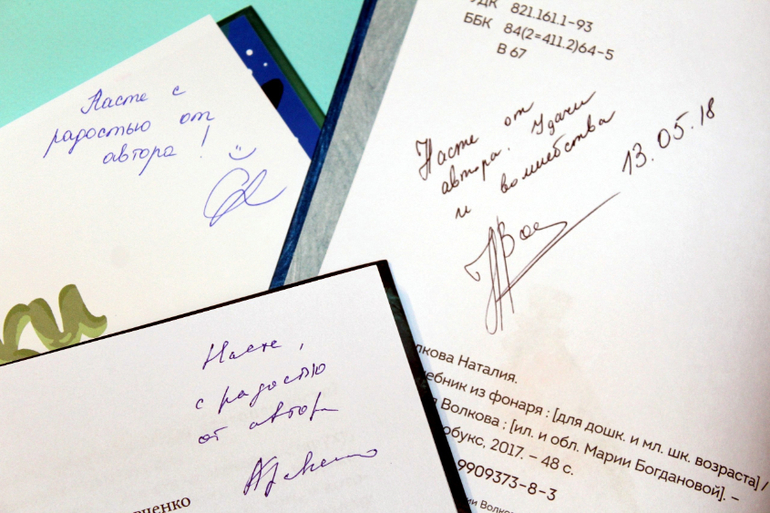 Насте с
радостью от
автора!
УДК 821.161.1-93
ББК 84(2=411.2)64-5
В 67
Насте от
автора. Удачи
и волшебства
13.05.18
лкова Наталия.
ебник из фонаря : [для дошк. и мл. шк. возраста] /
Волкова ; [ил. и обл. Марии Богдановой]. –
обукс. 2017. – 48 с.
9909373-8-3
ии Волков
Насте,
с радостью
от автора
ченко